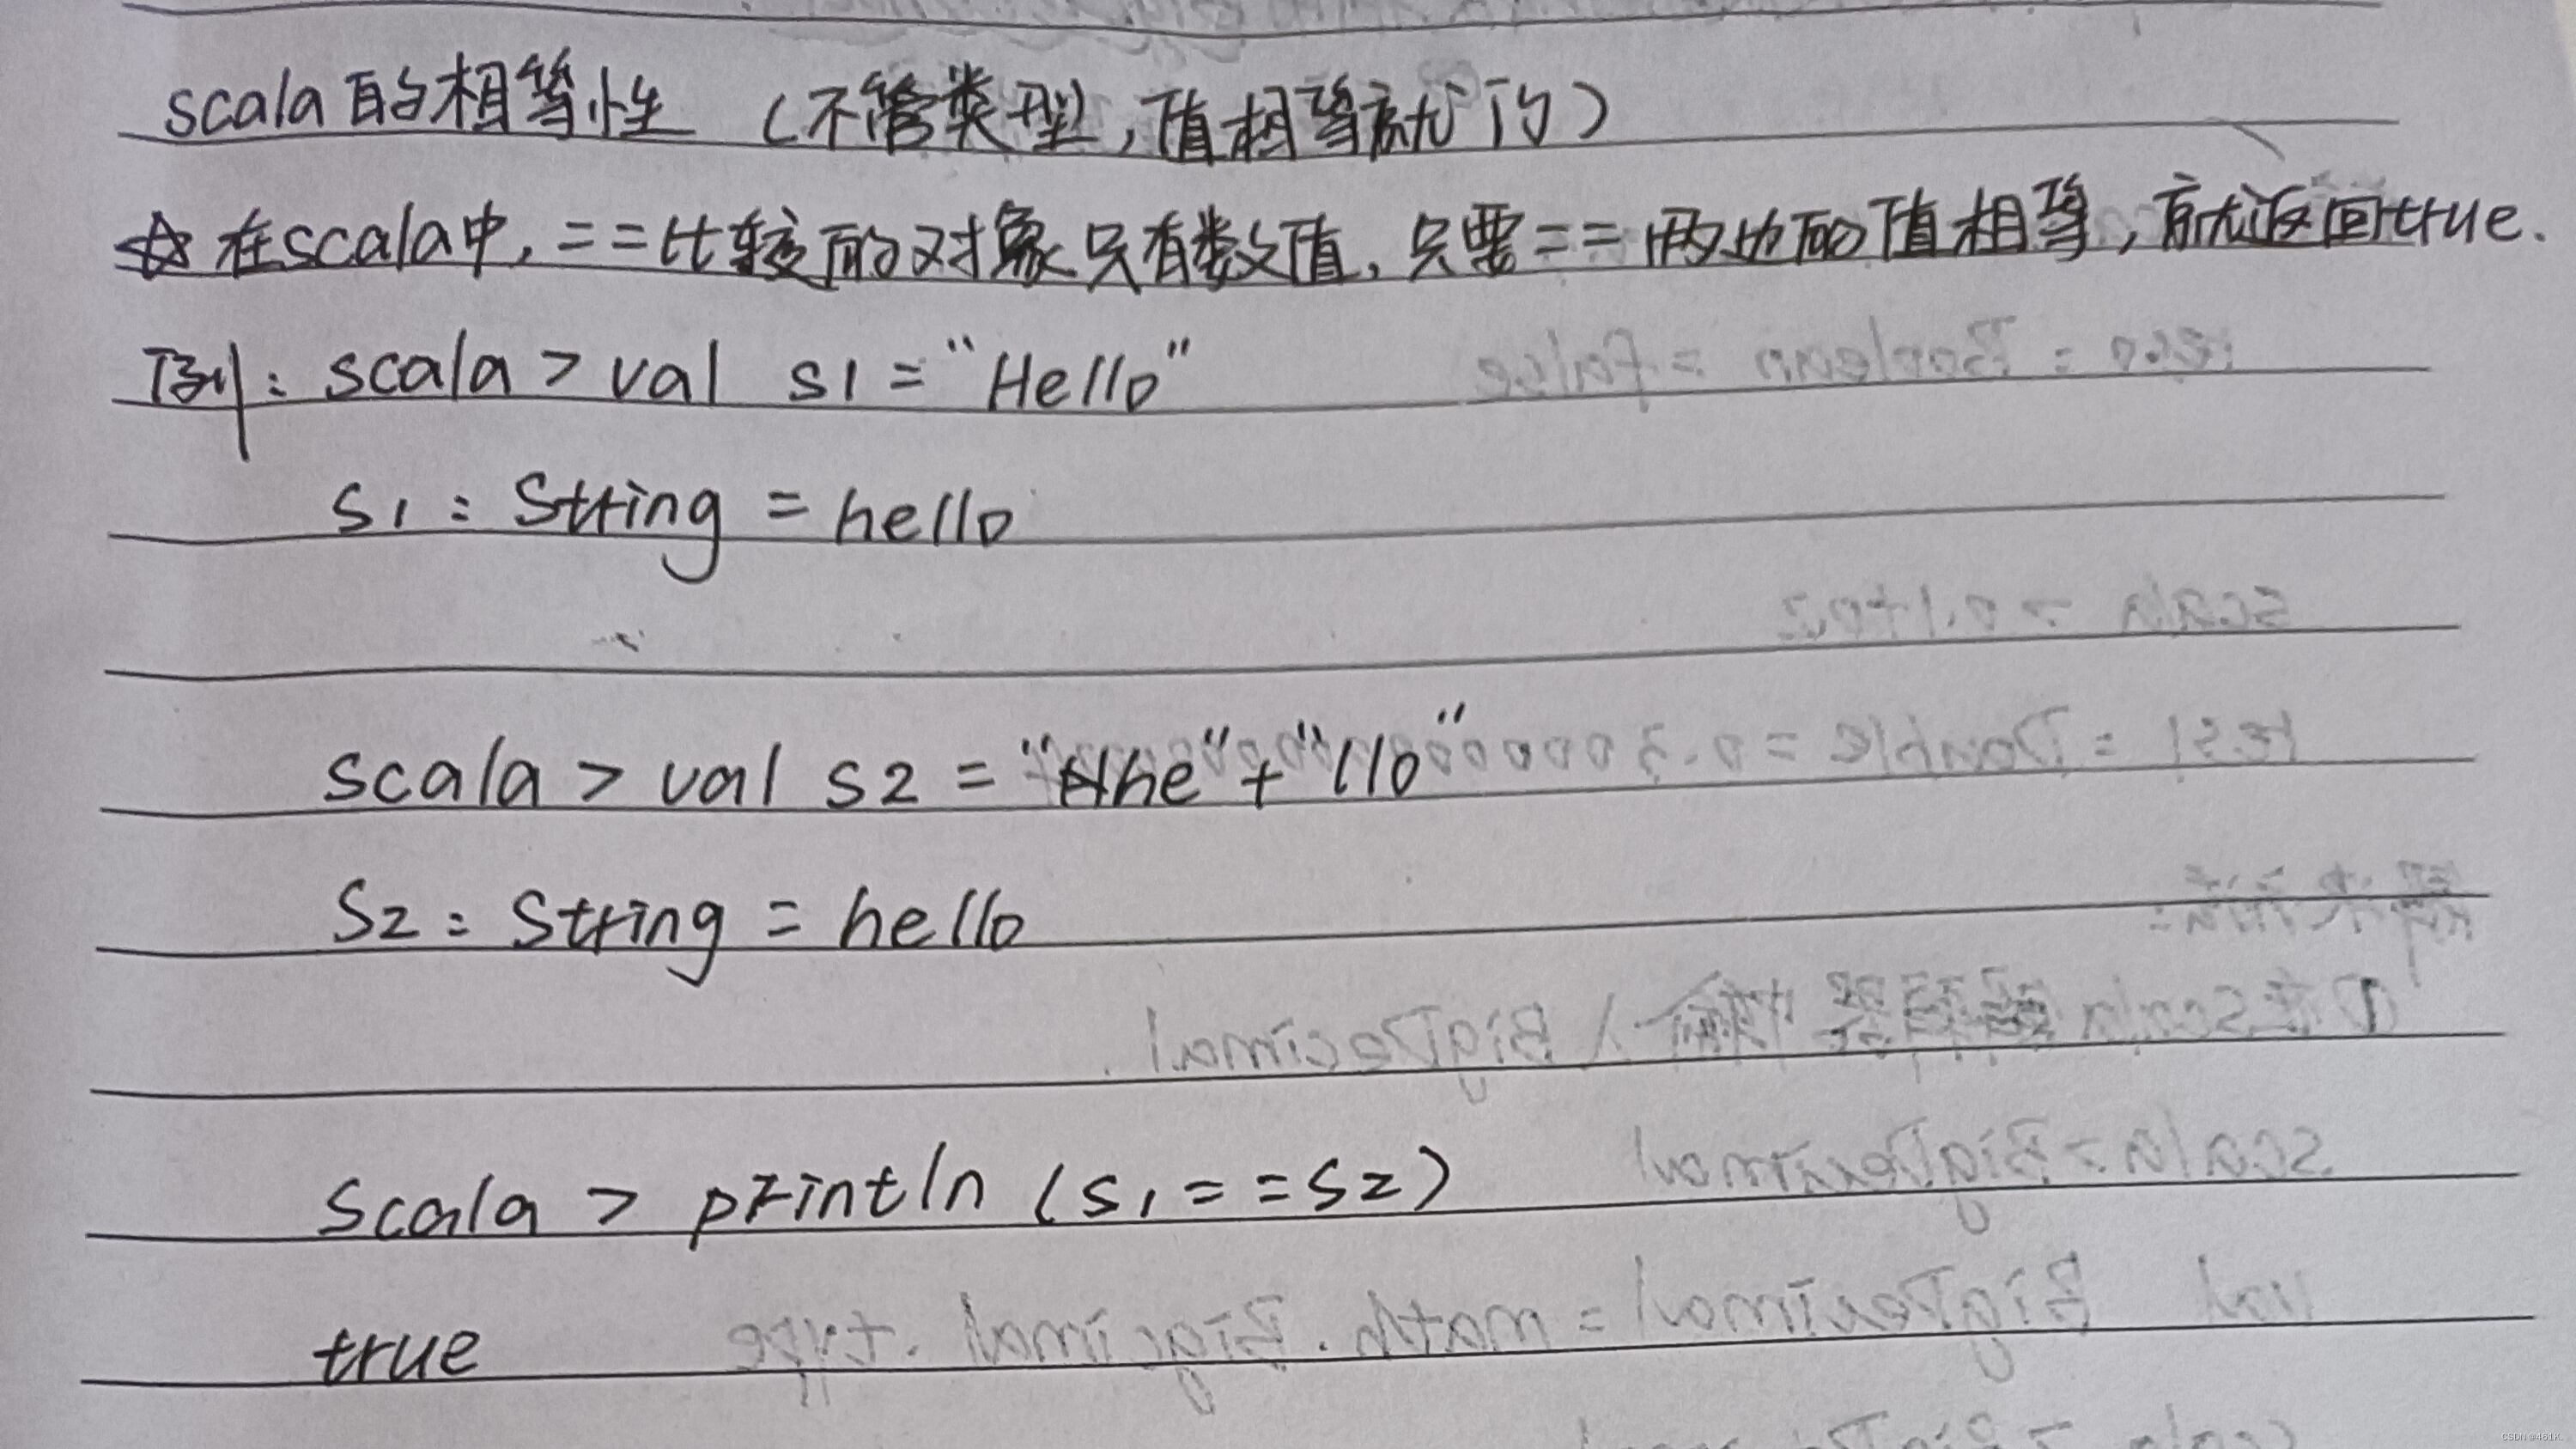 scala的相等性 (不管类型,值相等就行)
☆在scala中,==比较的对象只有数值,只要==两边的值相等,就返回true.
例:scala>val s1="Hello"
s1:String=hello
scala>val s2="he"+"llo"
s2:String=hello
scala>println(s1==s2)
true
CSDN @461K